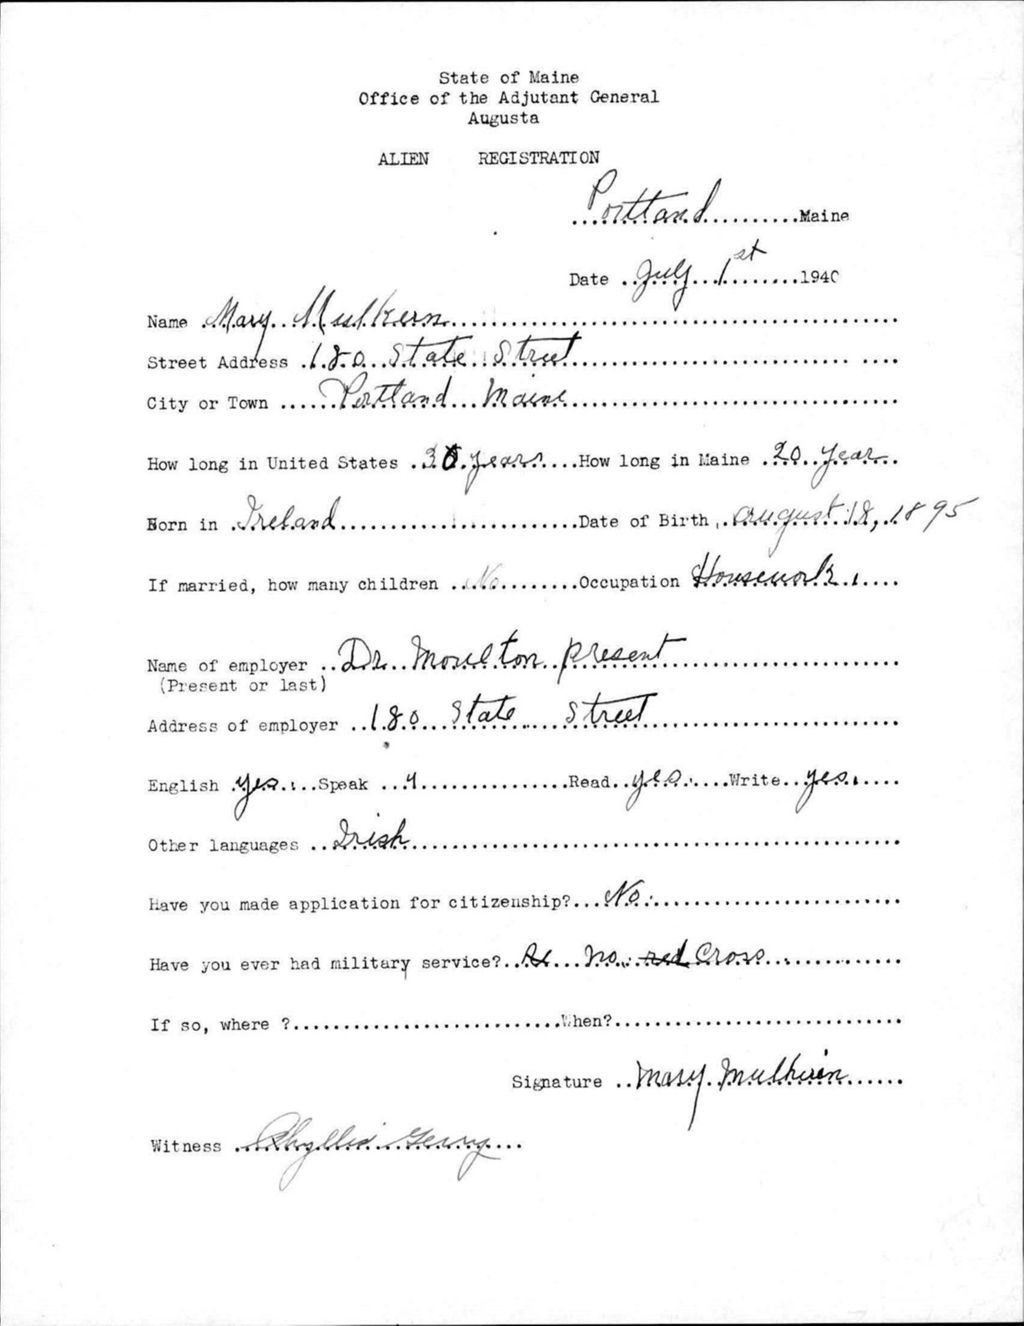 State of Maine
Office of the Adjutant General
Augusta
ALIEN REGISTRATION
Portland Maine
Date July 1st 1940
Name Mary Mulkern
Street Address 180 State Street
City or Town Portland Maine
How long in United States years How long in Maine 20 year
Born in Ireland Date of Birth august 18, 1895
If married, how many children No Occupation Housework
Name of employer Dr. Moulton present
(Present or last)
Address of employer 180 State Street
English yes Speak Read yes Write yes
Other languages Irish
Have you made application for citizenship? No
Have you ever had military service? no red Cross
If so, where ? When?
Signature Mary Mulkern
Witness Phyllis Gerry